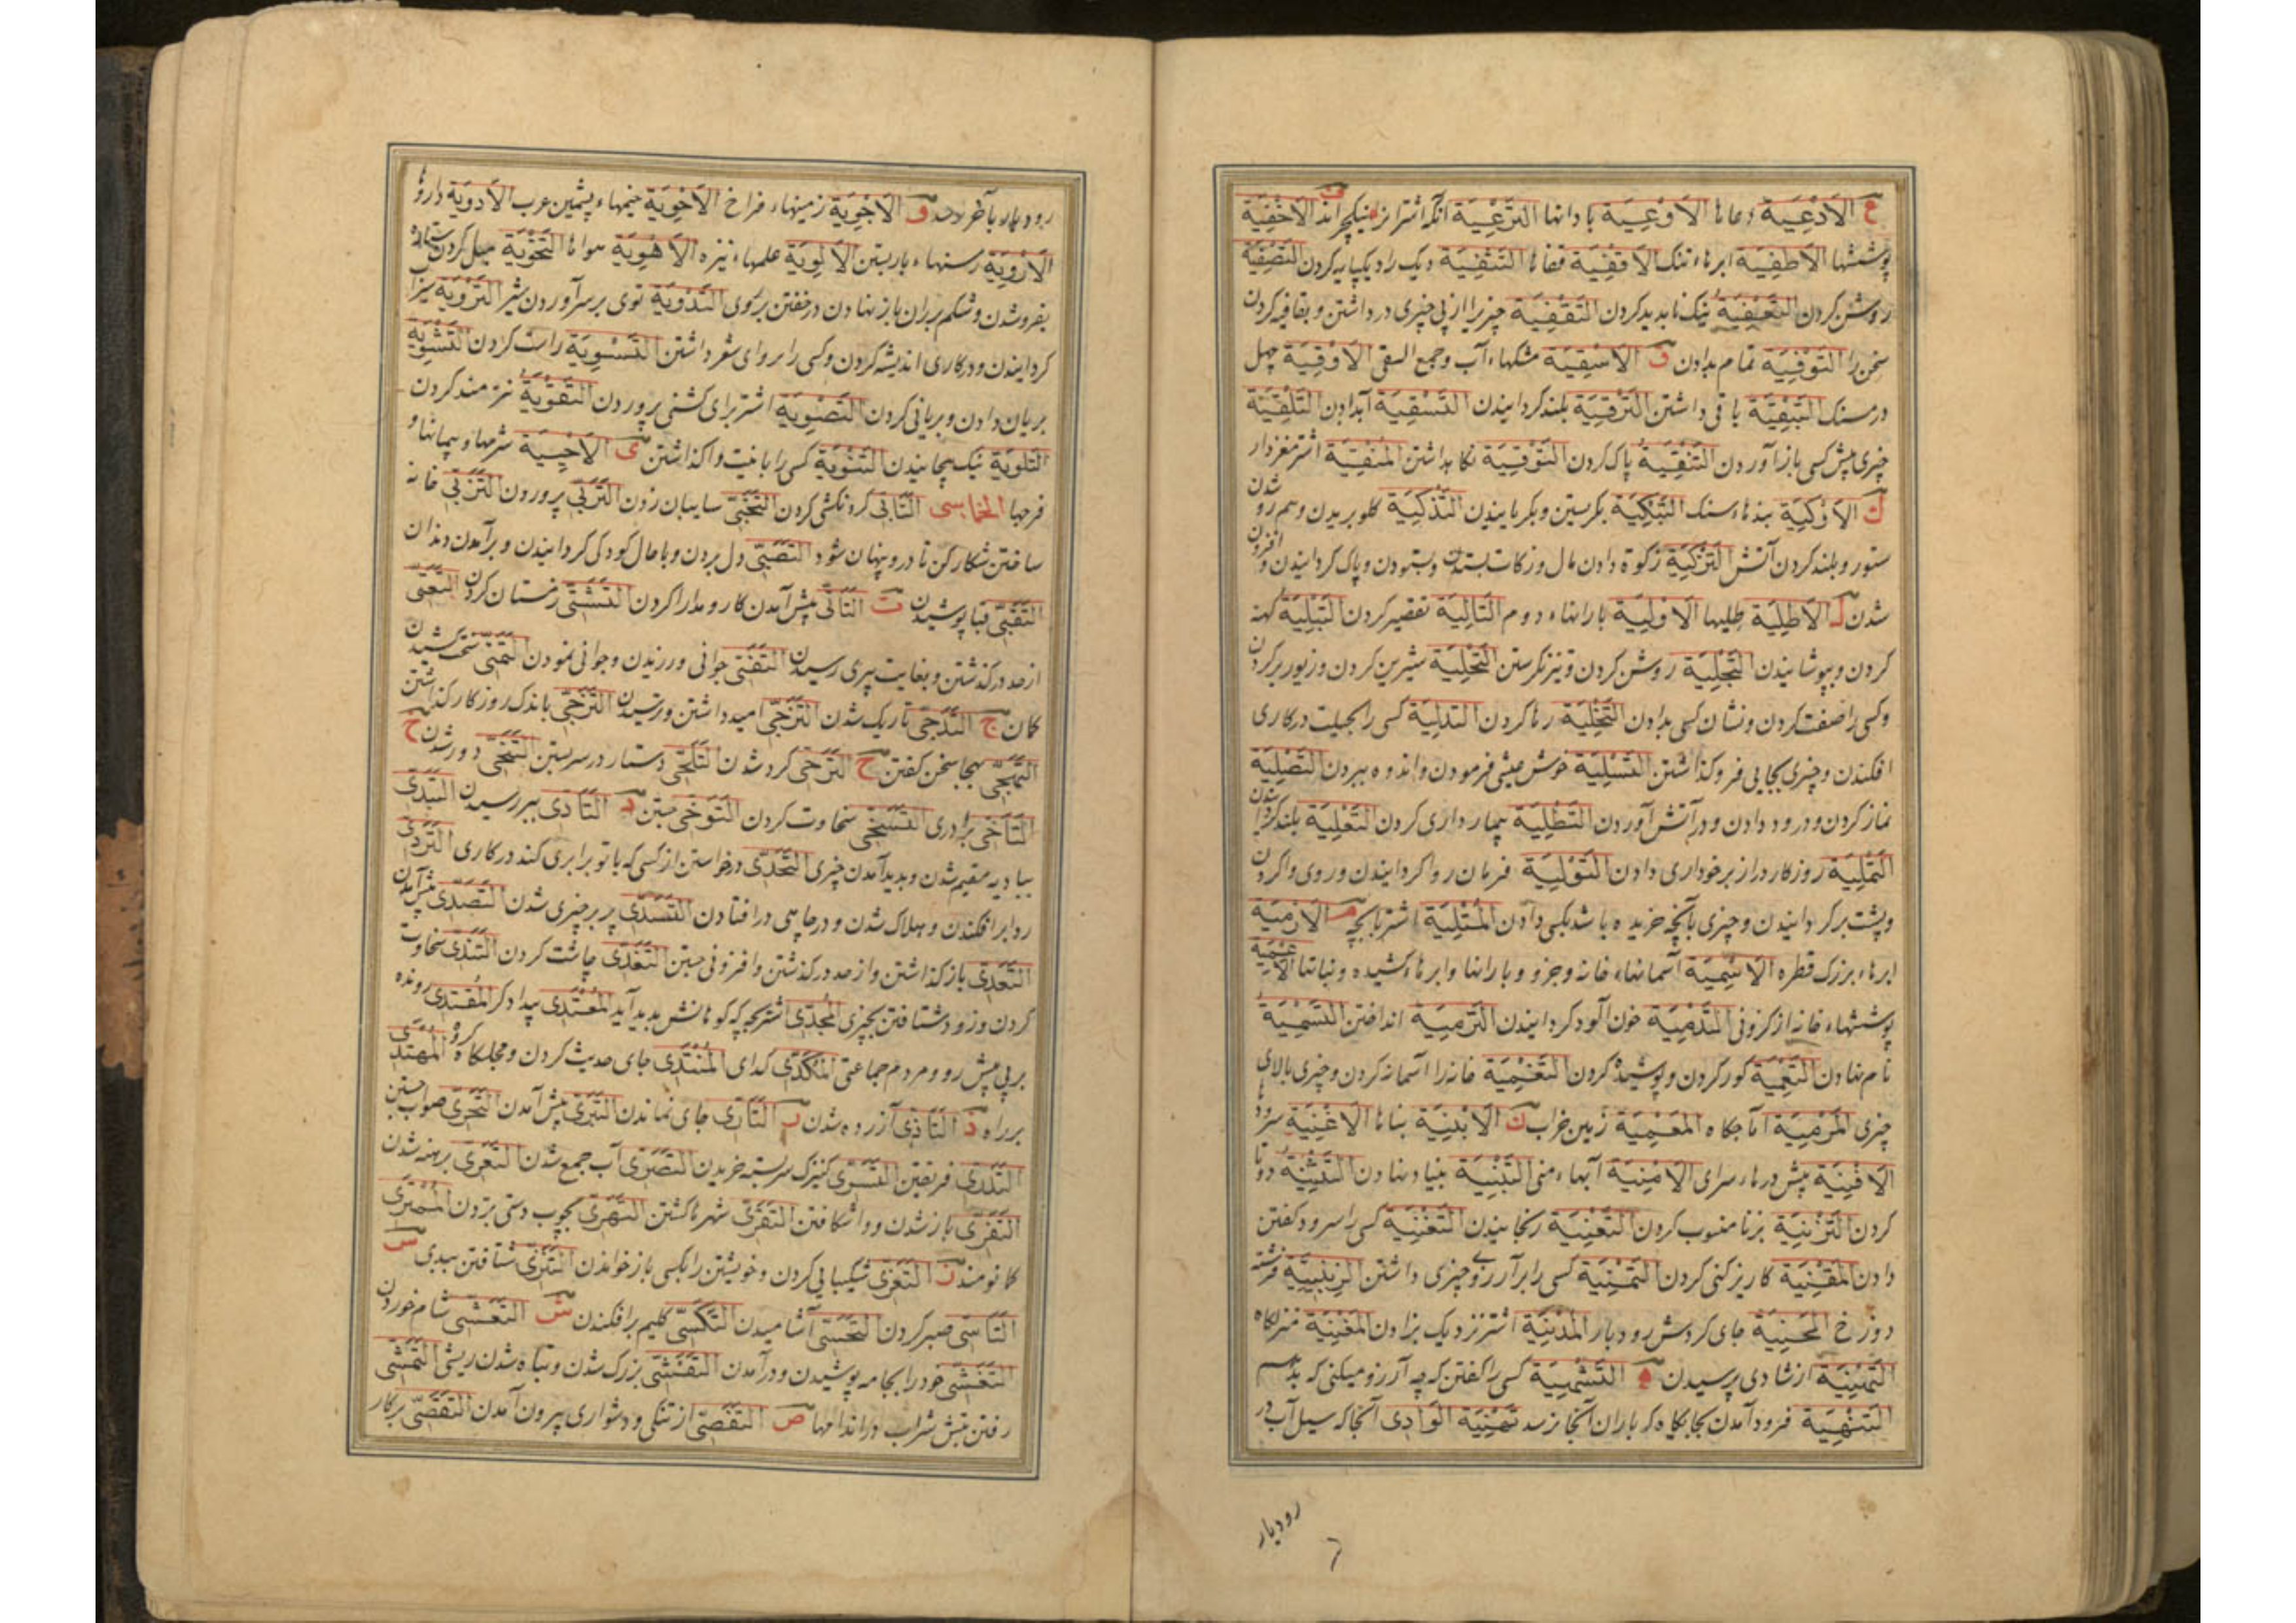 ع الاَدْعِيَة دعاها الاَوْعِيَة باردانها التَّرْعِيَة آنکه اشترانرا نیکو چراند ف الاَخْفِيَة
پوششها الاَطْفِيَة ابرهاء تنک الاَقْفِيَة قفاها التَّثْفِيَة دیک را دیکپایه کردن التَّصْفِيَة
روشن کردن التَّعْفِيَة نیک ناپدید کردن التَّقْفِيَة چیزیرا از پی چیزی درداشتن و بقافیه کردن
سخن را التَّوْفِيَة تمام بدادن ق الاَسْقِيَة مشکهاء آب و جمع السقی الاَوْقِيَة چهل
درمسنک التَّبْقِيَة باقی داشتن التَّرْقِيَة بلند کردانیدن التَّسْقِيَة آبدادن التَّلْقِيَة
چیزی پیش کسی باز آوردن التَّنْقِيَة پاک کردن التَّوْقِيَة نکاه داشتن المُنْقِيَة اشتر مغزدار
ك الاَوْكِيَة بندهاء مشک التَّبْكِيَة بکریستن و بکریانیدن التَّذْكِيَة کلو بریدن و همرو شدن
ستور و بلند کردن آتش التَّزْكِيَة زکوة دادن مال و زکات بستدن و بستودن و پاک کردانیدن و افزون
شدن ل الاَطْلِيَة طلیها الاَوْلِيَة بارانهاء دوم التَّالِيَة تقصیر کردن التَّبْلِيَة کهنه
کردن و بپوشانیدن التَّجْلِيَة روشن کردن و تیز نکرستن التَّحْلِيَة شیرین کردن و زیور برکردن
و کسی را صفت کردن و نشان کسی بدادن التَّخْلِيَة رها کردن التَّدْلِيَة کسی را بحیلت در کاری
افکندن و چیزی بجایی فروکذاشتن التَّسْلِيَة خوش عیشی فرمودن و اندوه ببردن التَّصْلِيَة
نماز کردن و درود دادن و در آتش آوردن التَّطْلِيَة بیمار داری کردن التَّعْلِيَة بلند کردن
التَّمْلِيَة روزکار دراز برخورداری دادن التَّوْلِيَة فرمان روا کردانیدن و روی واکردن
و پشت برکردانیدن و چیزی بانچه خریده باشد بکسی دادن المُتْلِيَة اشتر با بچه م الاَرْمِيَة
ابرهاء بزرک قطره الاَسْمِيَة آسمانهاء خانه و جزو و بارانها و ابرهاء کشیده و نباتها الاَغْمِيَة
پوششهاء خانه از کزونی التَّدْمِيَة خون آلود کردانیدن التَّرْمِيَة انداختن التَّسْمِيَة
نام نهادن التَّعْمِيَة کور کردن و پوشیده کردن التَّغْمِيَة خانه را آسمانه کردن و چیزی بالای
چیزی المَرْمِيَة آماجکاه المَعْمِيَة زمین خراب ن الاَبْنِيَة بناها الاَغْنِيَة سرودها
الاَفْنِيَة پیش درهاء سرای الاَمْنِيَة آبهاء منی التَّبْنِيَة بنیاد نهادن التَّثْنِيَة دوتا
کردن التَّزْنِيَة بزنا منسوب کردن التَّعْنِيَة رنجانیدن التَّغْنِيَة کسی را سرود کفتن
دادن المَقْنِيَة کاریز کنی کردن التَّمْنِيَة کسی را بر آرزوی چیزی داشتن الزِّبْنِيَّة فرشته
دوزخ المَحْنِيَة جای کردش رودبار المُدْنِيَة اشتر نزدیک بزادن المَغْنِيَة منزلکاه
التَّهْنِيَة از شادی پرسیدن ه التَّشْهِيَة کسی را کفتن که چه آرزو میکنی که بدهم
التَّنْهِيَة فرود آمدن بجایکاه که باران آنجا نرسد تَنْهِيَة الْوَادِی آنجا که سیل آب در
رودبار
رودبار بآخر رسد و الاَجْوِيَة زمینهاء فراخ الاَخْوِيَة خیمهاء پشمین عرب الاَدْوِيَة داروها
الاَرْوِيَة رسنهاء بار بستن الاَلْوِيَة علمهاء نیزه الاَهْوِيَة هواها التَّخْوِيَة میل کردن ستاره
بفروشدن و شکم بر ران باز نهادن در خفتن بر روی التَّدْوِيَة توی بر سر آوردن شیر التَّرْوِيَة سیراب
کردانیدن و در کاری اندیشه کردن و کسی را بر روای شعر داشتن التَّسْوِيَة راست کردن التَّشْوِيَة
بریان دادن و بریانی کردن التَّصْوِيَة اشتر برای کشنی پروردن التَّقْوِيَة نیرمند کردن
التَّلْوِيَة نیک پیچانیدن التَّنْوِيَة کسی را بانیت واکذاشتن ی الاَحْيِيَة شرمها و
فرجها الخماسی التَّأَبِّی کردنکشی کردن التَّخَبِّی سایبان زدن التَّرَبِّی پروردن التَّزَبِّی خانه
ساختن شکارکن تا درو پنهان شود التَّصَبِّی دل بردن و با حال کودکی کردانیدن و برآمدن دندان
التَّقَبِّی قبا پوشیدن ت التَّأَتِّی پیش آمدن کار و مدارا کردن التَّشَتِّی زمستان کردن التَّعَتِّی
از حد درکذشتن و بغایت پیری رسیدن التَّفَتِّی جوانی ورزیدن و جوانی نمودن التَّمَتِّی
کمان ج التَّدَجِّی تاریک شدن التَّرَجِّی امید داشتن و ترسیدن التَّزَجِّی باندک روزکار کذاشتن
التَّهَجِّی بهجا سخن کفتن ح التَّرَحِّی کرد شدن التَّلَحِّی دستار در سر بستن التَّنَحِّی دور شدن خ
التَّأَخِّی برادری التَّسَخِّی سخاوت کردن التَّوَخِّی جستن د التَّأَدِّی ببر رسیدن التَّبَدِّی
ببادیه مقیم شدن و پدید آمدن چیزی التَّحَدِّی درخواستن از کسی که با تو برابری کند در کاری التَّرَدِّی
ردا برافکندن و هلاک شدن و در چاهی درافتادن التَّسَدِّی بر بر چیزی شدن التَّصَدِّی پیش آمدن
التَّعَدِّی باز کذاشتن و از حد درکذشتن و افزونی جستن التَّغَدِّی چاشت کردن التَّنَدِّی سخاوت
کردن و زود شتافتن بچیزی المُجْدِی اشتر بچه که کوهانش پدید آید المُعْتَدِی بیدادکر المُقْتَدِی رونده
بر پی پیش رو و مردم جماعتی المُكَدِّی کدای المُنْتَدِی جای حدیث کردن و مجلسکاه کروه المُهْتَدِی
بر راه ذ التَّأَذِّی آزرده شدن ر التَّأَرِّی جای نماندن التَّبَرِّی پیش آمدن التَّحَرِّی صواب جستن
التَّدَرِّی فریفتن التَّسَرِّی کنیزک سربسته خریدن التَّصَرِّی آب جمع شدن التَّعَرِّی برهنه شدن
التَّفَرِّی باز شدن و واشکافتن التَّقَرِّی شهرها کشتن التَّهَرِّی بچوب دستی بزدن المُمْتَرِی
کمانومند ز التَّعَزِّی شکیبایی کردن و خویشتن را بکسی باز خواندن التَّنَزِّی شتافتن ببدی س
التَّأَسِّی صبر کردن التَّحَسِّی آشامیدن التَّكَسِّی کلیم برافکندن ش التَّعَشِّی شام خوردن
التَّغَشِّی خود را بجامه پوشیدن و درآمدن التَّفَشِّی بزرک شدن و تباه شدن ریش التَّمَشِّی
رفتن تپش شراب در اندامها ص التَّفَصِّی از تنکی و دشواری بیرون آمدن التَّقَصِّی بر کار